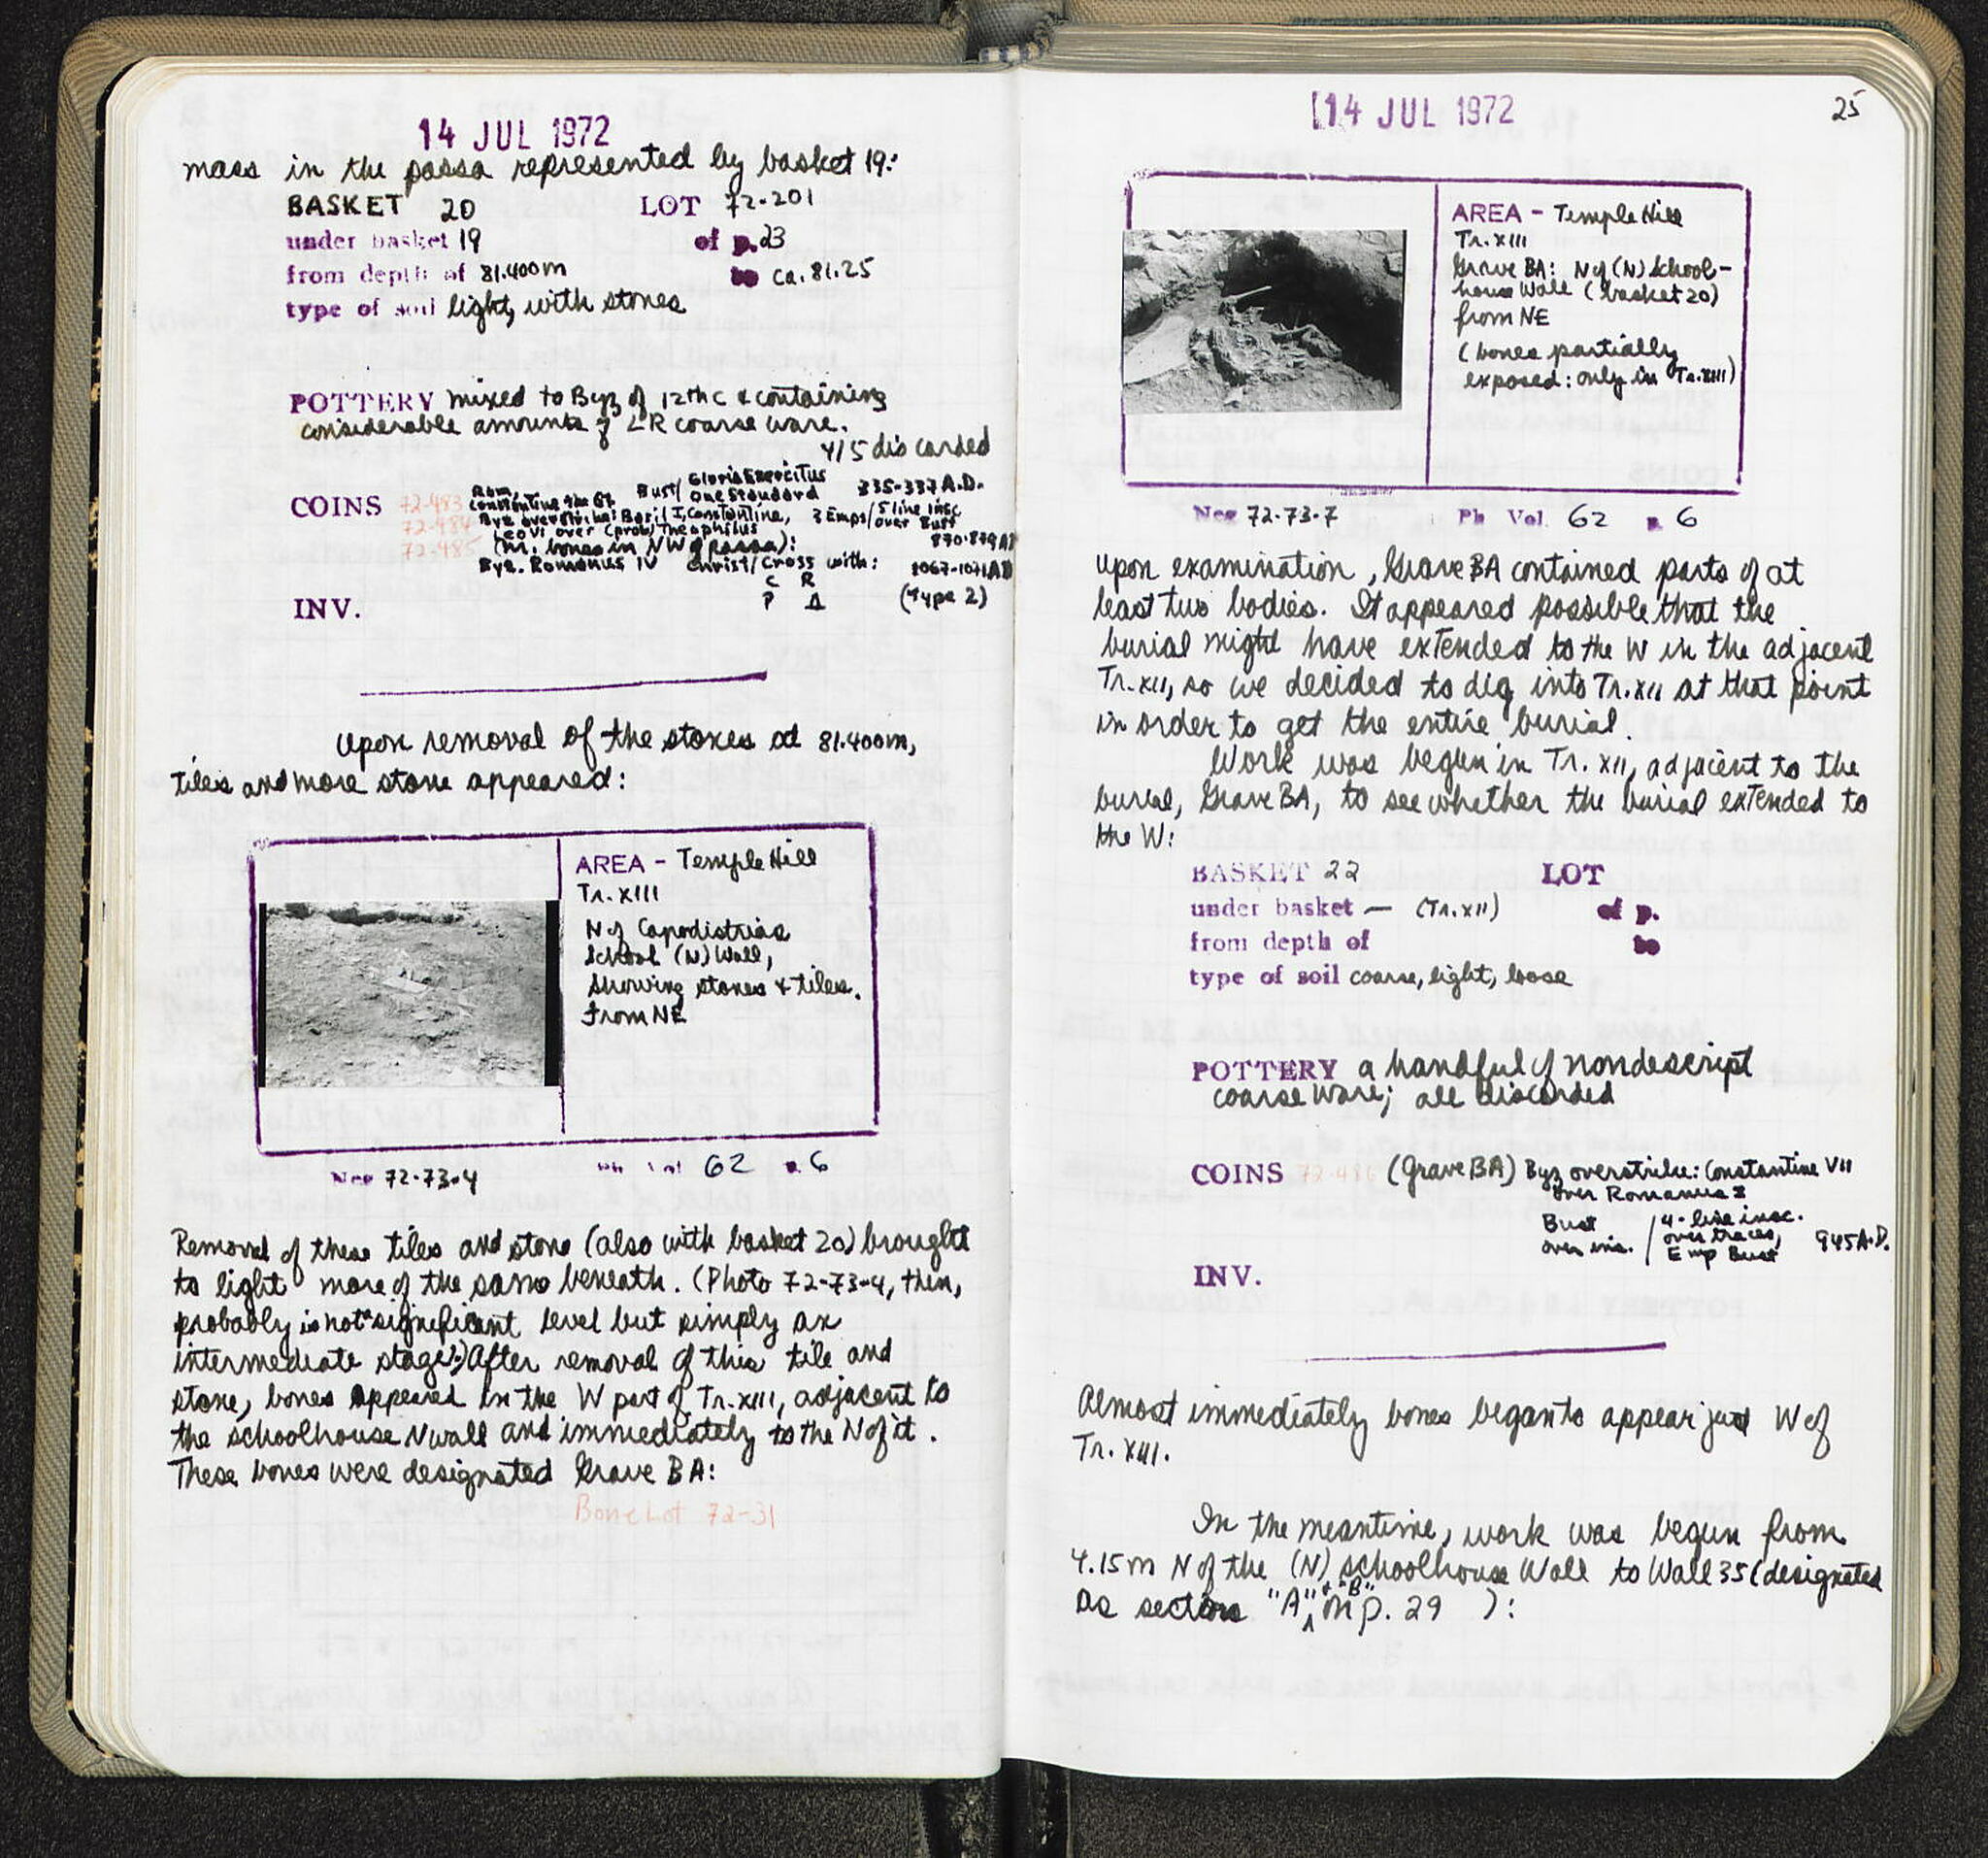 14 JUL 1972
mass in the passa represented by basket 19:
BASKET 20 LOT 72-201
under basket 19 of p. 23
from depth of 81.400m to ca. 81.25
type of soil light, with stones
POTTERY mixed to Byz of 12th c & containing
considerable amounts of LR coarse ware.
4/5 discarded
COINS 72-483 Rom. Constantine the Gt. Bust/ Gloria Exercitus One Standard 335-337 A.D.
72-484 Byz overstrike: Basil I, Constantine, 3 Emps/5 line insc.
Leo VI over (prob) Theophilus over Bust 870-879 AD
72-485 (nr. bones in NW of passa):
Byz. Romanus IV Christ/Cross with: 1067-1071 AD
C R
P Δ (Type 2)
INV.
Upon removal of the stones at 81.400m,
tiles and more stone appeared:
AREA - Temple Hill
Tr. XIII
N of Capodistrias
School (N) Wall,
Showing stones & tiles.
From NE
Neg 72-73-4 Ph Vol 62 p. 6
Removal of these tiles and stone (also with basket 20) brought
to light more of the same beneath. (Photo 72-73-4, then,
probably is not a significant level but simply an
intermediate stage.) After removal of this tile and
stone, bones appeared in the W part of Tr. XIII, adjacent to
the schoolhouse N wall and immediately to the N of it.
These bones were designated Grave BA:
Bone Lot 72-31
14 JUL 1972
25
AREA - Temple Hill
Tr. XIII
Grave BA: N of (N) School-
house Wall (basket 20)
from NE
(bones partially
exposed: only in Tr. XIII)
Neg 72-73-7 Ph Vol 62 p. 6
Upon examination, Grave BA contained parts of at
least two bodies. It appeared possible that the
burial might have extended to the W in the adjacent
Tr. XII, so we decided to dig into Tr. XII at that point
in order to get the entire burial.
Work was begun in Tr. XII, adjacent to the
burial, Grave BA, to see whether the burial extended to
the W:
BASKET 22 LOT
under basket — (Tr. XII) of p.
from depth of to
type of soil coarse, light, loose
POTTERY a handful of nondescript
coarse ware; all discarded
COINS 72-486 (Grave BA) Byz overstrike: Constantine VII
over Romanus I
Bust over ins. / 4-line insc. over traces, Emp Bust 945 A.D.
INV.
Almost immediately bones began to appear just W of
Tr. XIII.
In the meantime, work was begun from
4.15m N of the (N) schoolhouse Wall to Wall 35 (designated
as sectors "A" & "B" on p. 29 ):